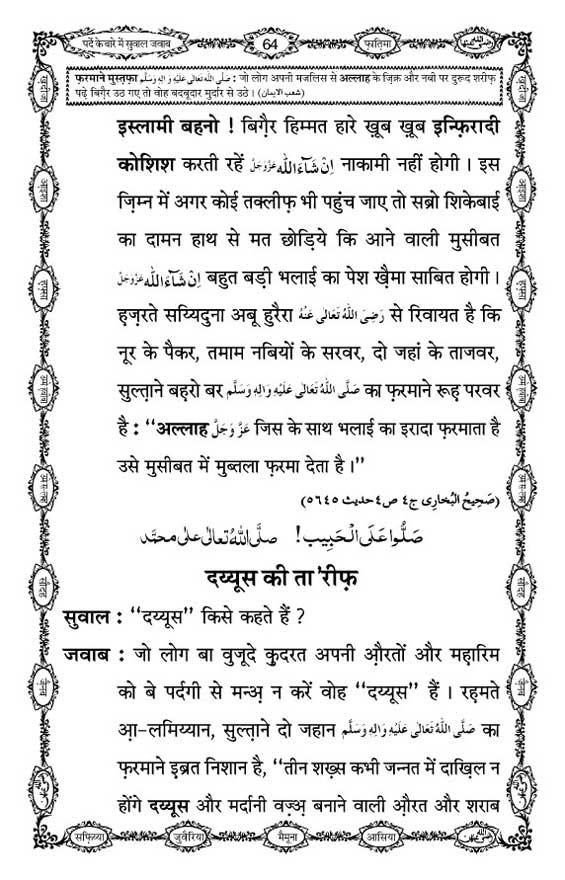 पर्दे के बारे में सुवाल जवाब
64
फ़ातिमा
फ़रमाने मुस्तफ़ा صَلَّى اللهُ تَعَالٰى عَلَيْهِ وَاٰلِهٖ وَسَلَّم : जो लोग अपनी मजलिस से अल्लाह के ज़िक्र और नबी पर दुरूद शरीफ़
पढ़े बिग़ैर उठ गए तो वोह बदबूदार मुर्दार से उठे। (شعب الایمان)
इस्लामी बहनो ! बिग़ैर हिम्मत हारे ख़ूब ख़ूब इन्फ़िरादी
कोशिश करती रहें اِنْ شَآءَ اللّٰه عَزَّوَجَلَّ नाकामी नहीं होगी। इस
ज़िम्न में अगर कोई तक्लीफ़ भी पहुंच जाए तो सब्रो शिकेबाई
का दामन हाथ से मत छोड़िये कि आने वाली मुसीबत
اِنْ شَآءَ اللّٰه عَزَّوَجَلَّ बहुत बड़ी भलाई का पेश ख़ैमा साबित होगी।
हज़रते सय्यिदुना अबू हुरैरा رَضِىَ اللّٰهُ تَعَالٰى عَنْهُ से रिवायत है कि
नूर के पैकर, तमाम नबियों के सरवर, दो जहां के ताजवर,
सुल्ताने बहरो बर صَلَّى اللّٰهُ تَعَالٰى عَلَيْهِ وَاٰلِهٖ وَسَلَّم का फ़रमाने रूह परवर
है : “अल्लाह عَزَّ وَجَلَّ जिस के साथ भलाई का इरादा फ़रमाता है
उसे मुसीबत में मुब्तला फ़रमा देता है।”
(صَحِيحُ البُخارِى ج٤ ص٤ حديث ٥٦٤٥)
صَلُّوا عَلَى الْحَبِيب! صلَّى اللّٰهُ تعالٰى علٰى محمَّد
दय्यूस की ता'रीफ़
सुवाल : “दय्यूस” किसे कहते हैं ?
जवाब : जो लोग बा वुजूदे कुदरत अपनी औ़रतों और महारिम
को बे पर्दगी से मन्अ़ न करें वोह “दय्यूस” हैं। रहमते
आ़-लमिय्यान, सुल्ताने दो जहान صَلَّى اللّٰهُ تَعَالٰى عَلَيْهِ وَاٰلِهٖ وَسَلَّم का
फ़रमाने इब्रत निशान है, “तीन शख़्स कभी जन्नत में दाख़िल न
होंगे दय्यूस और मर्दानी वज़्अ़ बनाने वाली औ़रत और शराब
सफ़िय्या
जुवैरिया
मैमूना
आसिया